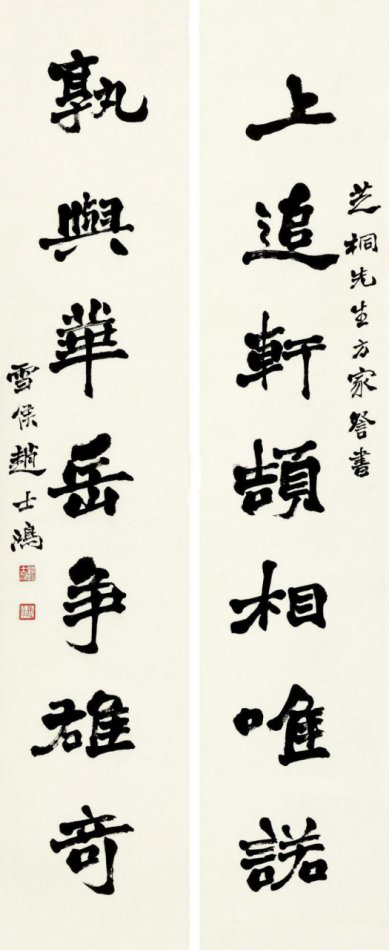 芝桐先生方家詧書
上追軒頡相唯諾
孰與華岳爭雄奇
雪侯趙士鴻